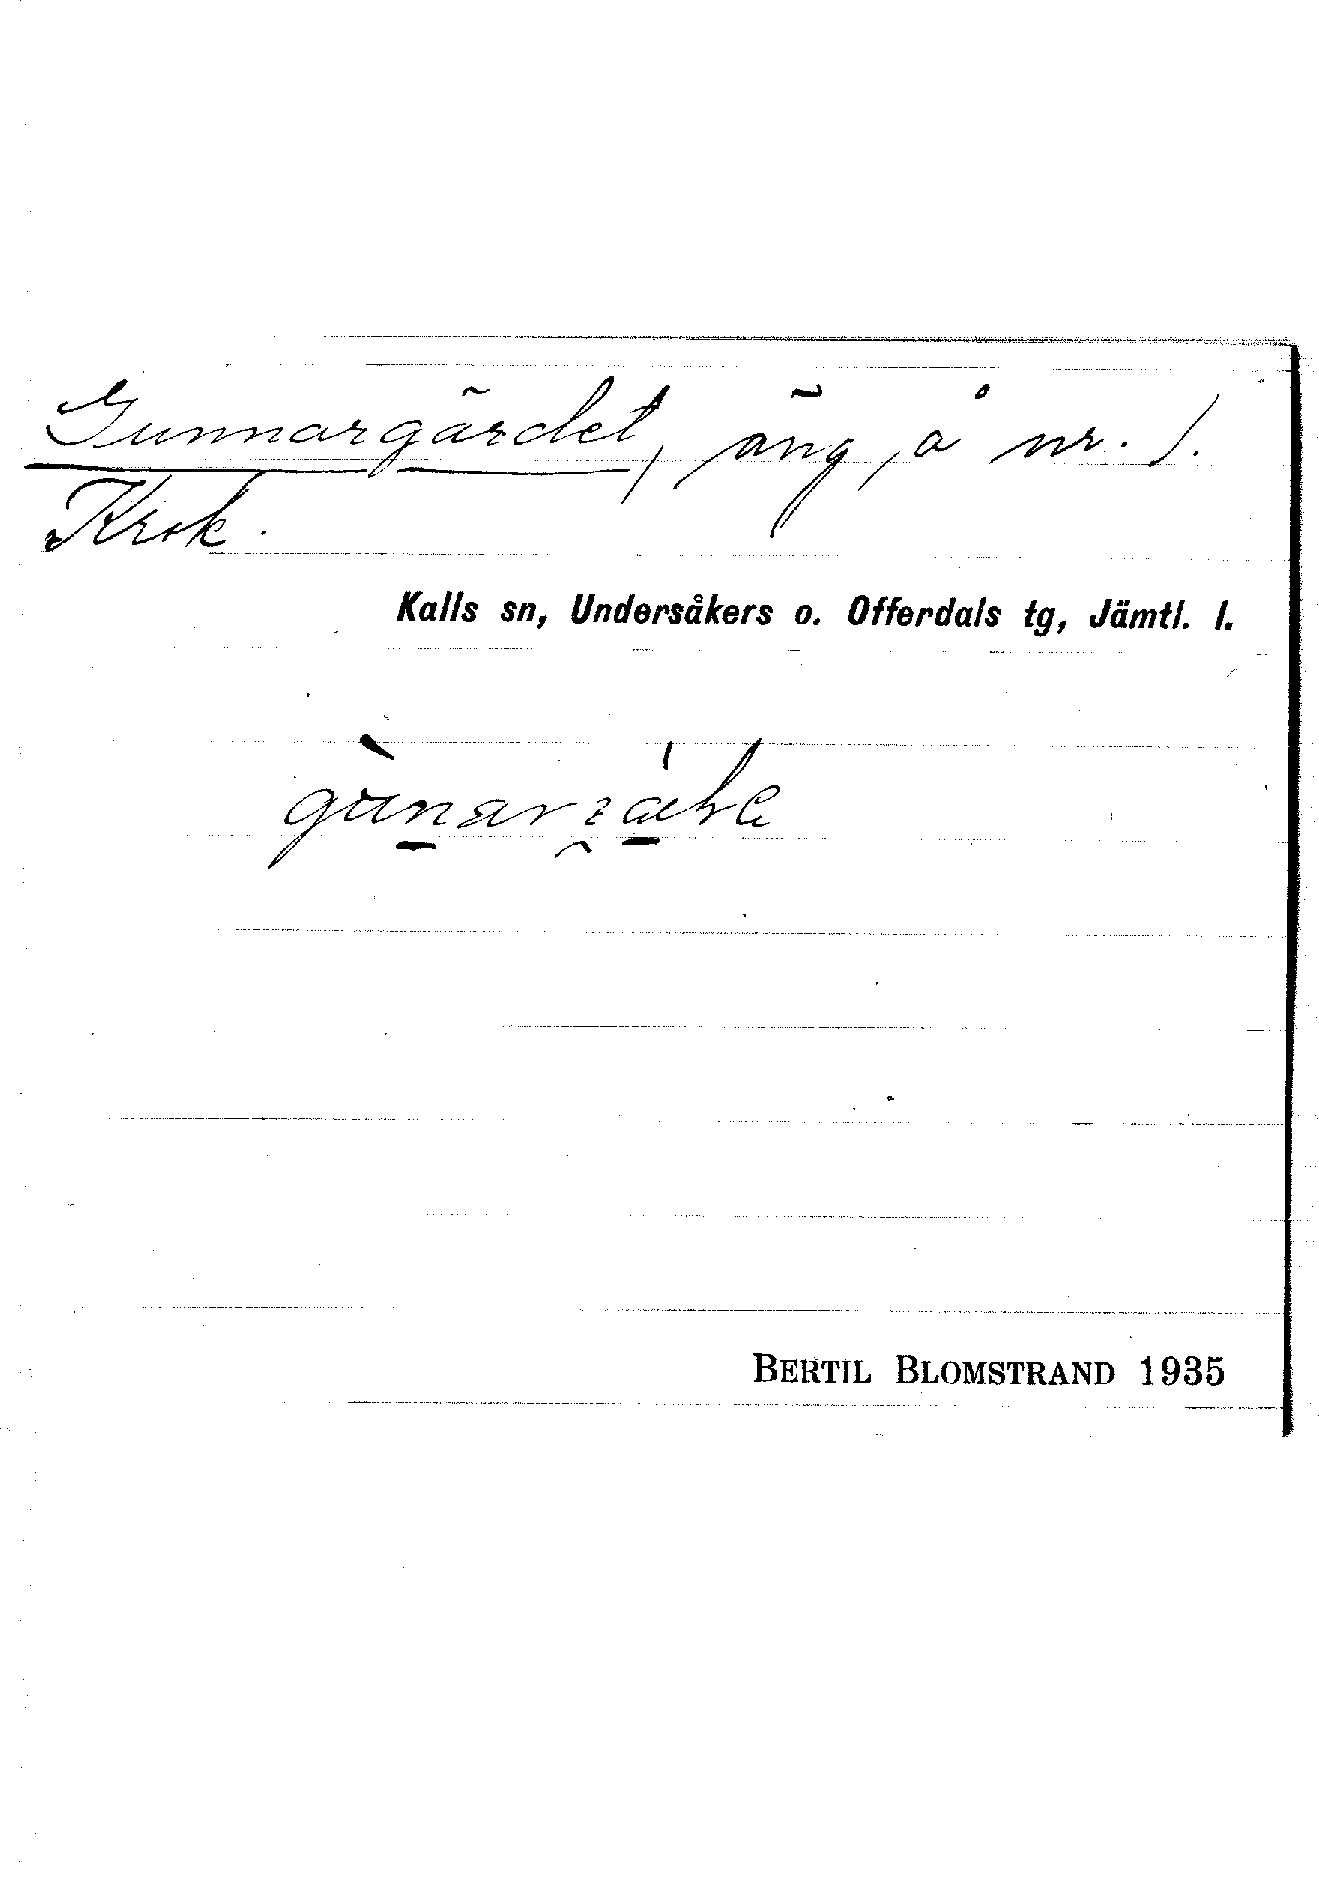 Gunnargärdet, äng, å nr. 1.
Krok.
Kalls sn, Undersåkers o. Offerdals tg, Jämtl. l.
BERTIL BLOMSTRAND 1935